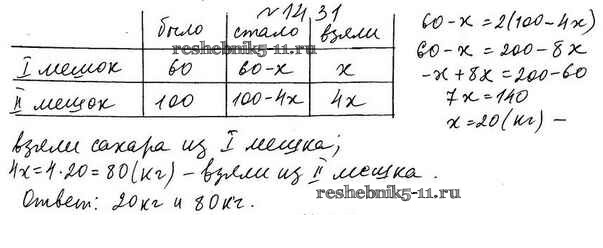 №14.31
было стало взяли
I мешок 60 60-x x
II мешок 100 100-4x 4x
60-x=2(100-4x)
60-x=200-8x
-x+8x=200-60
7x=140
x=20(кг) –
взяли сахара из I мешка;
4x=4·20=80(кг) – взяли из II мешка.
Ответ: 20кг и 80кг.
reshebnik5-11.ru
reshebnik5-11.ru